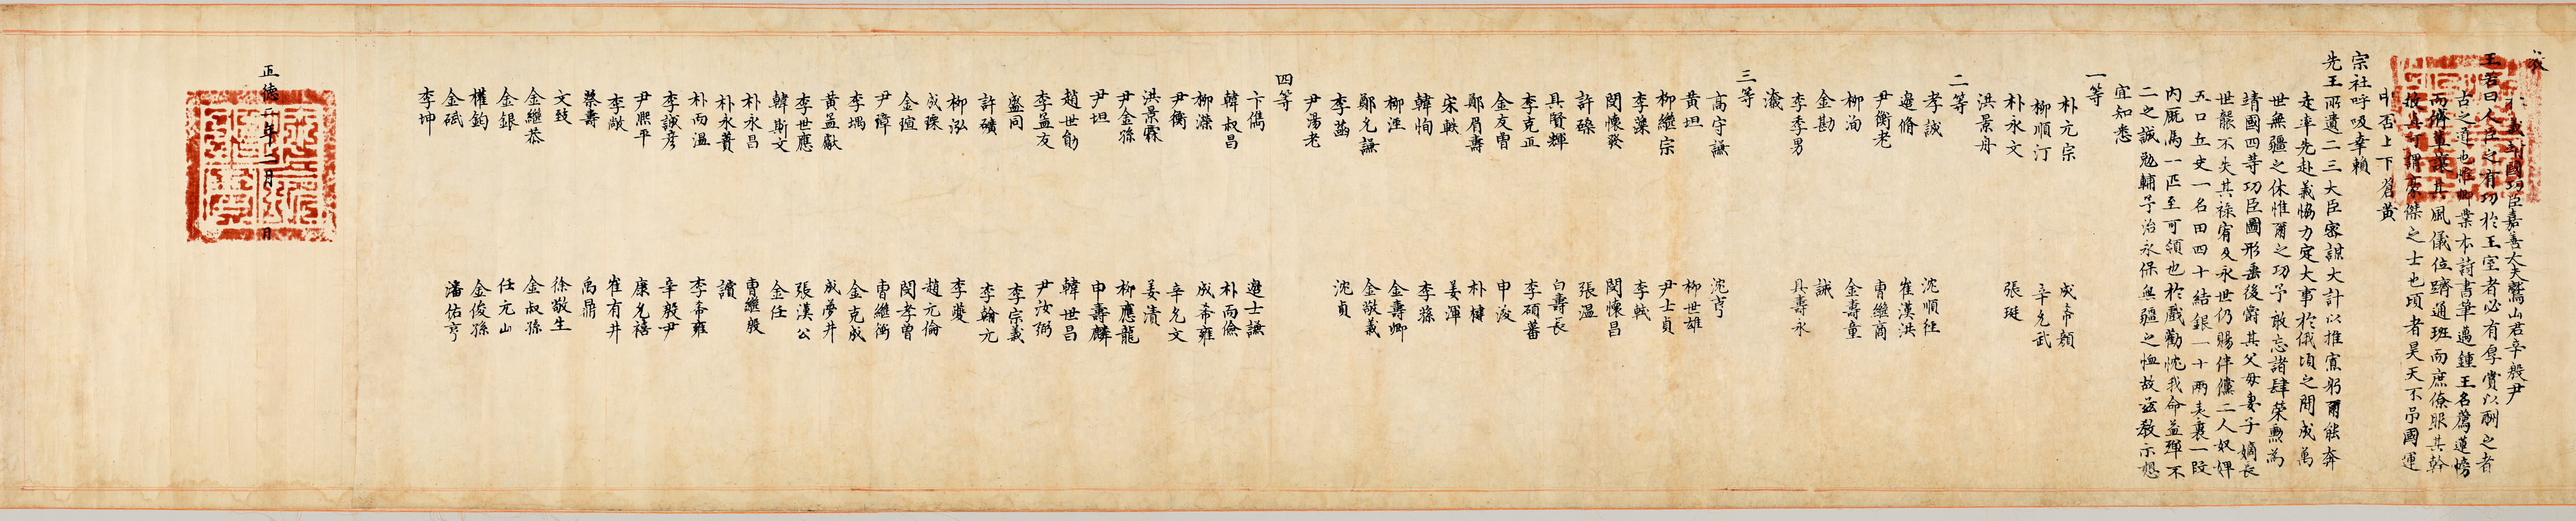 教
秉義靖國功臣嘉善大夫鷲山君辛殷尹
王若曰人臣之有功於王室者必有厚賞以酬之者
古之道也惟卿業本詩書筆邁鍾王名薦蓮榜
而濟薰襲其風儀位躋通班而庶僚服其幹
故眞可謂豪傑之士也頃者昊天不弔國運
中否上下蒼黃
宗社呼吸幸賴
先王所遺二三大臣密謀大計以推寡躬爾能奔
走率先赴義恊力定大事於俄頃之間成萬
世無疆之休惟爾之功予敢忘諸肆榮勳為
靖國四等功臣圖形垂後爵其父母妻子嫡長
世襲不失其祿宥及永世仍賜伴儻二人奴婢
五口丘史一名田四十結銀一十兩表裏一段
內廐馬一匹至可領也於戲勸忱我命益殫不
二之誠勉輔予治永保無疆之恤故玆教示想
宜知悉
一等
朴元宗 成希顔
柳順汀 辛允武
朴永文 張珽
洪景舟
二等
李誠 沈順徑
邊脩 崔漢洪
尹衡老 曺繼商
柳洵 金壽童
金勘 諴
李季男 具壽永
三等
高守謙 沈亨
黃坦 柳世雄
柳繼宗 尹士貞
李藻 李軾
閔懷發 閔懷昌
許磼 張溫
具賢輝 白壽長
李克正 李碩蕃
金友曾 申浚
鄭眉壽 朴楗
宋軼 姜渾
韓恂 李蓀
柳涇 金壽卿
鄭允謙 金敬義
李菡 沈貞
尹湯老
四等
卞儁 邊士謙
韓叔昌 朴尚儉
柳濚 成希雍
尹衡 辛允文
洪景霖 姜漬
尹金孫 柳應龍
尹坦 申壽麟
趙世勛 韓世昌
李孟友 尹汝弼
盛同 李宗義
許礦 李翰元
柳泓 李夔
成瑮 趙元倫
金瑄 閔孝曾
尹璋 曺繼衡
李堣 金克成
黃孟獻 成夢井
李世應 張漢公
韓斯文 金任
朴永昌 曺繼殷
朴永蕡 讀
朴而溫 李希雍
李誠彦 辛殷尹
尹熙平 康允禧
李畝 崔有井
蔡壽 禹鼎
文致 徐敬生
金繼恭 金叔孫
金銀 任元山
權鈞 金俊孫
金碔 潘佑亨
李坤
正德二年二月 日